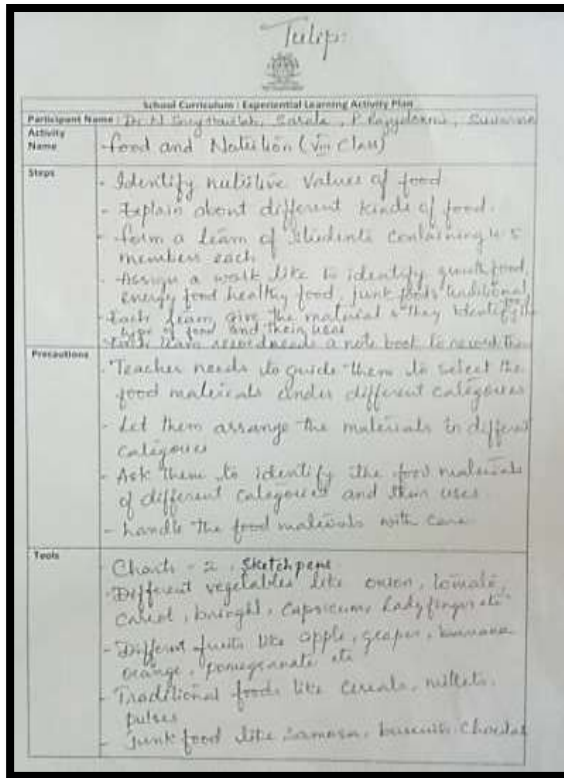 Tulip:
School Curriculum : Experiential Learning Activity Plan
Participant Name : Dr. N Sarala, P
Activity Name
Food and Nutrition (VIII Class)
Steps
- Identify nutritive values of food
- Explain about different kinds of food.
- form a team of students containing 4-5
members each
- Assign a like to identify food,
energy food healthy food, junk foods traditional
- Each team give the material & they Identify the
type of food and their uses
- Each team needs a note book to record
Precautions
- Teacher needs to guide them to select the
food materials under different categories
- Let them arrange the materials in different
categories
- Ask them to identify the food materials
of different categories and their uses
- handle the food materials with care
Tools
- Charts - 2, Sketch pens
- Different vegetables like onion, tomato,
carrot, , capsicum, Ladyfinger etc
- Different fruits like apple, grapes,
orange, pomegranate etc
- Traditional foods like cereals, millets,
pulses
- junk food like Samosa, biscuits